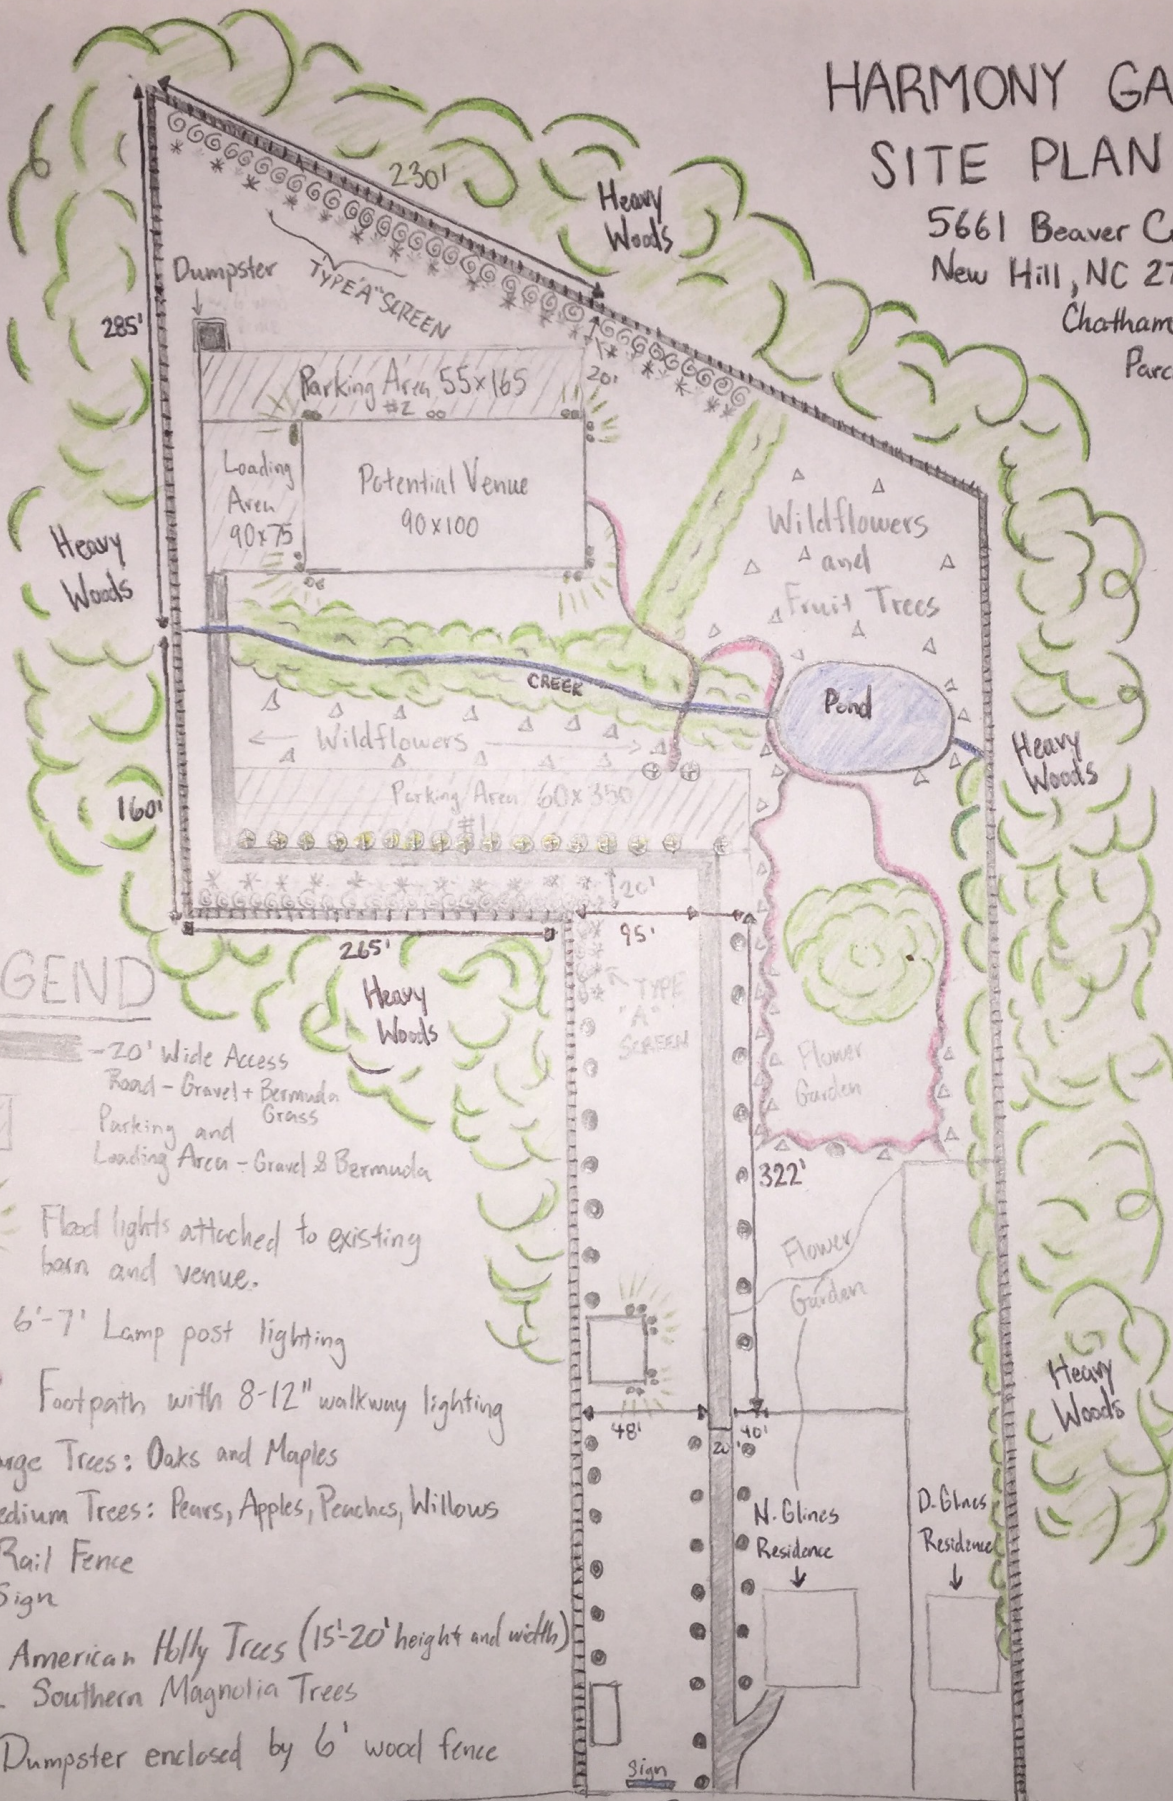 HARMONY GA
SITE PLAN
5661 Beaver C
New Hill, NC 27
Chatham
Parc
230'
Heavy
Woods
Dumpster
TYPE "A" SCREEN
285'
Parking Area 55x165
#2
20'
Loading
Area
90x75
Potential Venue
90x100
Wildflowers
and
Fruit Trees
Heavy
Woods
CREEK
Pond
Wildflowers
Heavy
Woods
Parking Area 60x350
#1
160'
20'
265'
95'
Heavy
Woods
TYPE
"A"
SCREEN
Flower
Garden
322'
Flower
Garden
48'
20'
40'
Heavy
Woods
N. Glines
Residence
D. Glines
Residence
Sign
GEND
-20' Wide Access
Road - Gravel + Bermuda
Grass
Parking and
Loading Area - Gravel & Bermuda
Flood lights attached to existing
barn and venue.
6'-7' Lamp post lighting
Footpath with 8-12" walkway lighting
arge Trees: Oaks and Maples
edium Trees: Pears, Apples, Peaches, Willows
Rail Fence
Sign
American Holly Trees (15'-20' height and width)
Southern Magnolia Trees
Dumpster enclosed by 6' wood fence